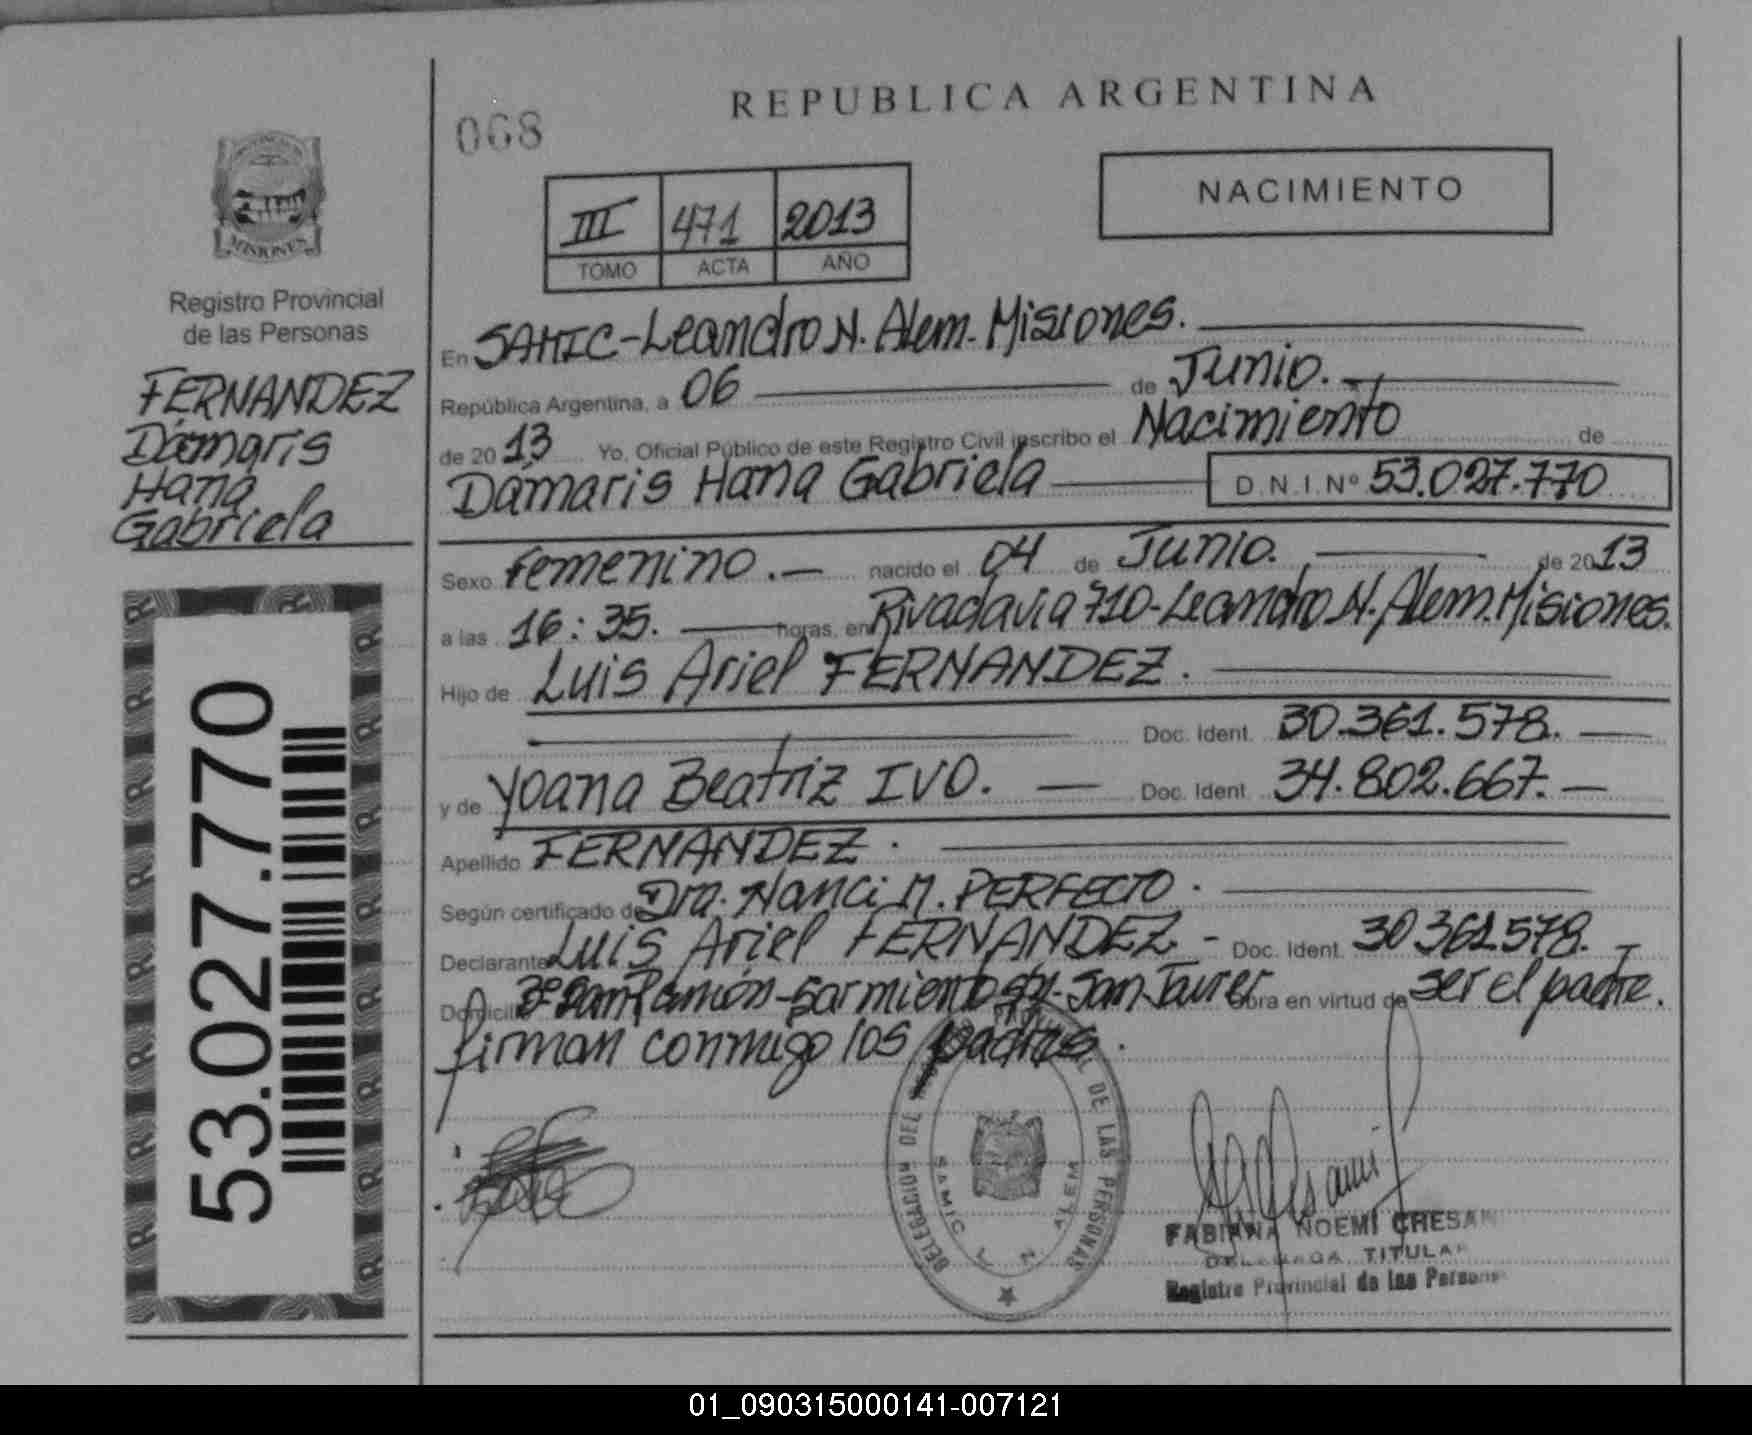 REPUBLICA ARGENTINA
068
NACIMIENTO
III 471 2013
TOMO ACTA AÑO
MISIONES
Registro Provincial
de las Personas
FERNANDEZ
Dámaris
Hana
Gabriela
53.027.770
En SAMIC-Leandro N. Alem-Misiones.
República Argentina, a 06 de Junio.
de 2013 Yo, Oficial Público de este Registro Civil inscribo el Nacimiento de
Dámaris Hana Gabriela D.N.I.Nº 53.027.770
Sexo femenino. nacido el 04 de Junio. de 2013
a las 16:35. horas, en Rivadavia 710-Leandro N. Alem. Misiones.
Hijo de Luis Ariel FERNANDEZ.
Doc. Ident. 30.361.578.
y de Yoana Beatriz IVO. Doc. Ident. 34.802.667.
Apellido FERNANDEZ.
Según certificado de Dra. Nanci M. PERFECTO.
Declarante Luis Ariel FERNANDEZ - Doc. Ident. 30361578.
Domicilio San Ramón-Sarmiento San Javier obra en virtud de ser el padre.
firman conmigo los padres.
DELEGACION DEL DE LAS PERSONAS
SAMIC L. N. ALEM
FABIANA NOEMI CRESAN
DELEGADA TITULAR
Registro Provincial de las Persona
01_090315000141-007121